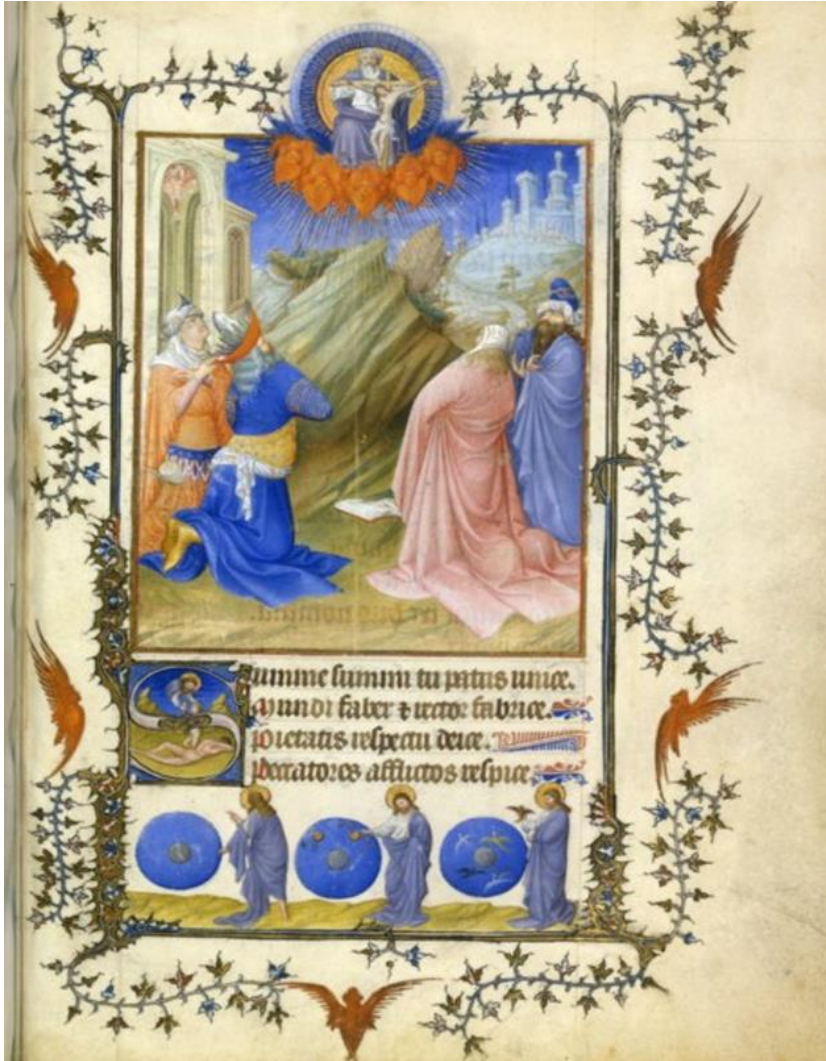 Summe summi tu patris unice.
Mundi faber ⁊ rector fabrice.
Pietatis respectu deice.
Peccatores afflictos respice